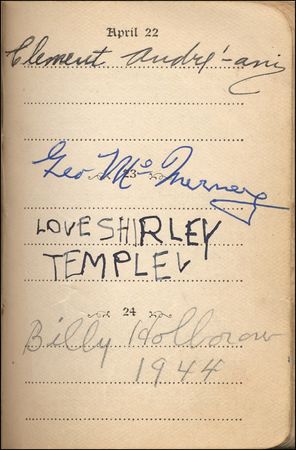 April 22
Clement André-ani
23
Geo McInerney
LOVE SHIRLEY
TEMPLEV
24
Billy Holbrow
1944